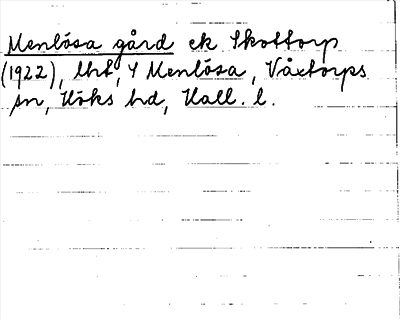 Menlösa gård ek. Skottorp
(1922), lht, 4 Menlösa, Våxtorps
sn, Höks hd, Hall. l.